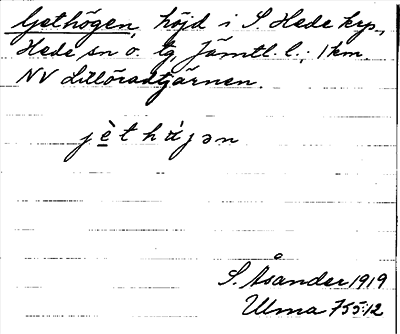 Gethögen, höjd i S. Hede kry.,
Hede sn o. tg, Jämtl. l.; 1 km.
NV Lillöradtjärnen.
jèthǿjən
S. Åsander 1919
Ulma 755:12